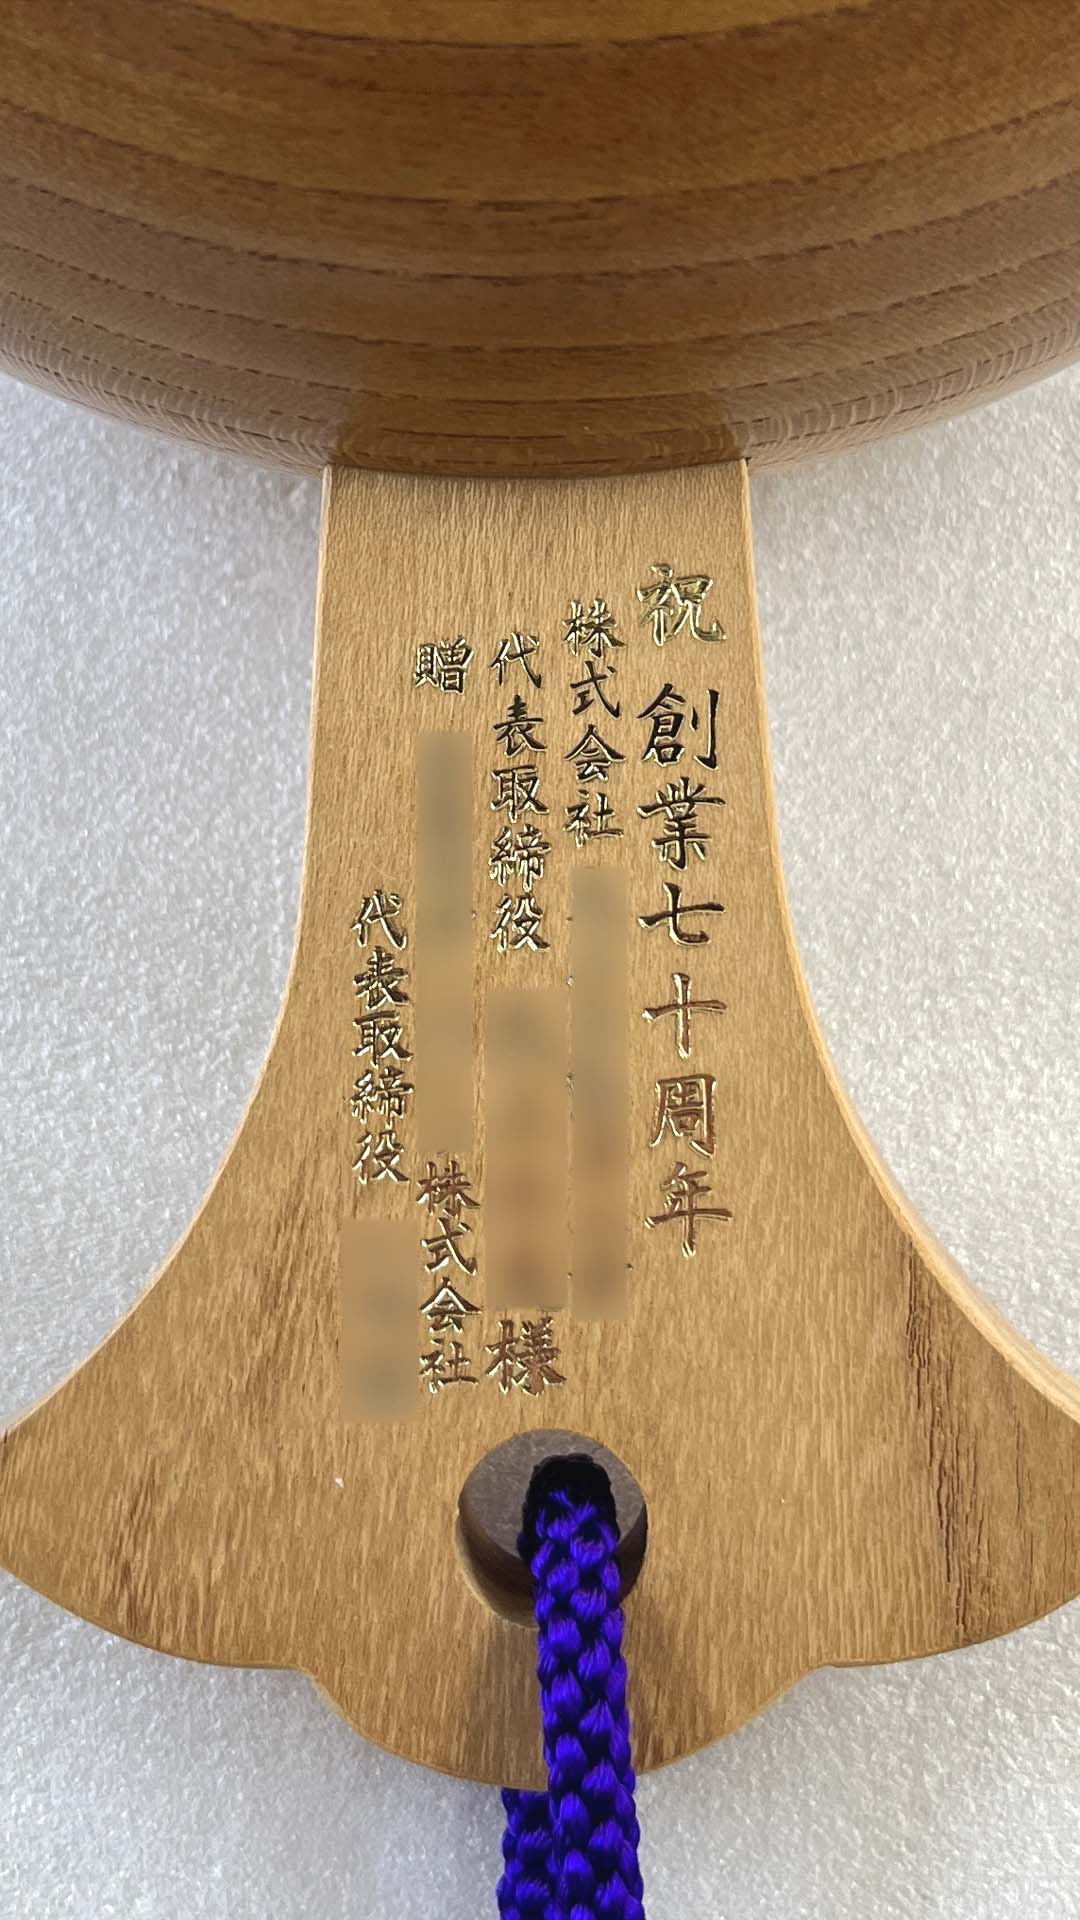 祝 創業七十周年
株式会社
代表取締役 様
贈 株式会社
代表取締役